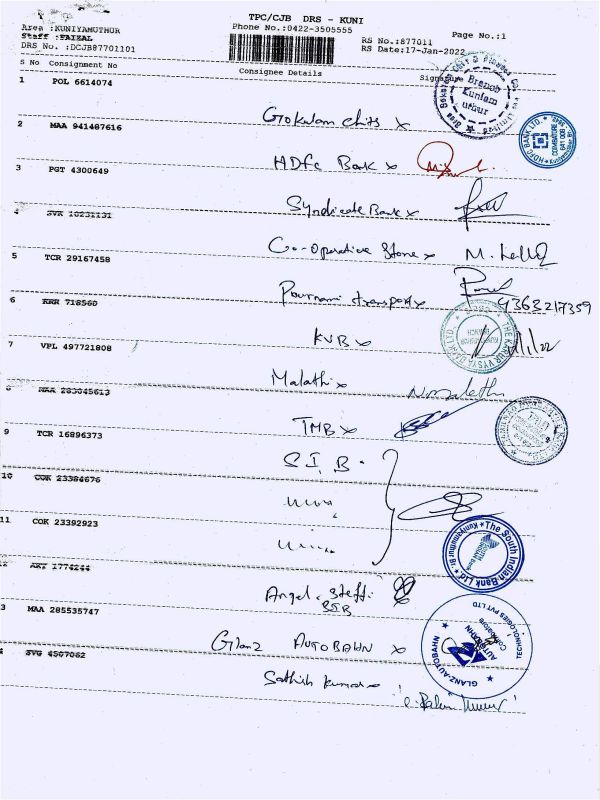 TPC/CJB DRS - KUNI
Area :KUNIYAMUTHUR Phone No.:0422-3505555 Page No.:1
Staff :FAIZAL RS No.:877011
DRS No. :DCJB87701101 RS Date:17-Jan-2022
S No Consignment No Consignee Details Signature
1 POL 6614074
Gokulam chits x
Branch
2 MAA 941487616
HDFC BANK LTD.
HDFC Bank x
3 PGT 4300649
Syndicate Bank x
4 SVK 10231131
Co-operative Store x
5 TCR 29167458
Pournami transport x 9363217359
6 KRR 718560
KVB x THE KARUR VYSYA BANK LTD.
7 VPL 497721808
Malathi x
8 MAA 283045613
TMB x
9 TCR 16896373
S.I.B.
10 COK 23384676
11 COK 23392923
The South Indian Bank Ltd
12 1774244
Angel. Steffi
SIB
13 MAA 285535747
Glanz AUTOBAHN x GLANZ-AUTOBAHN TECHNOLOGIES PVT LTD
SVG 4507062
Sathish kumar x